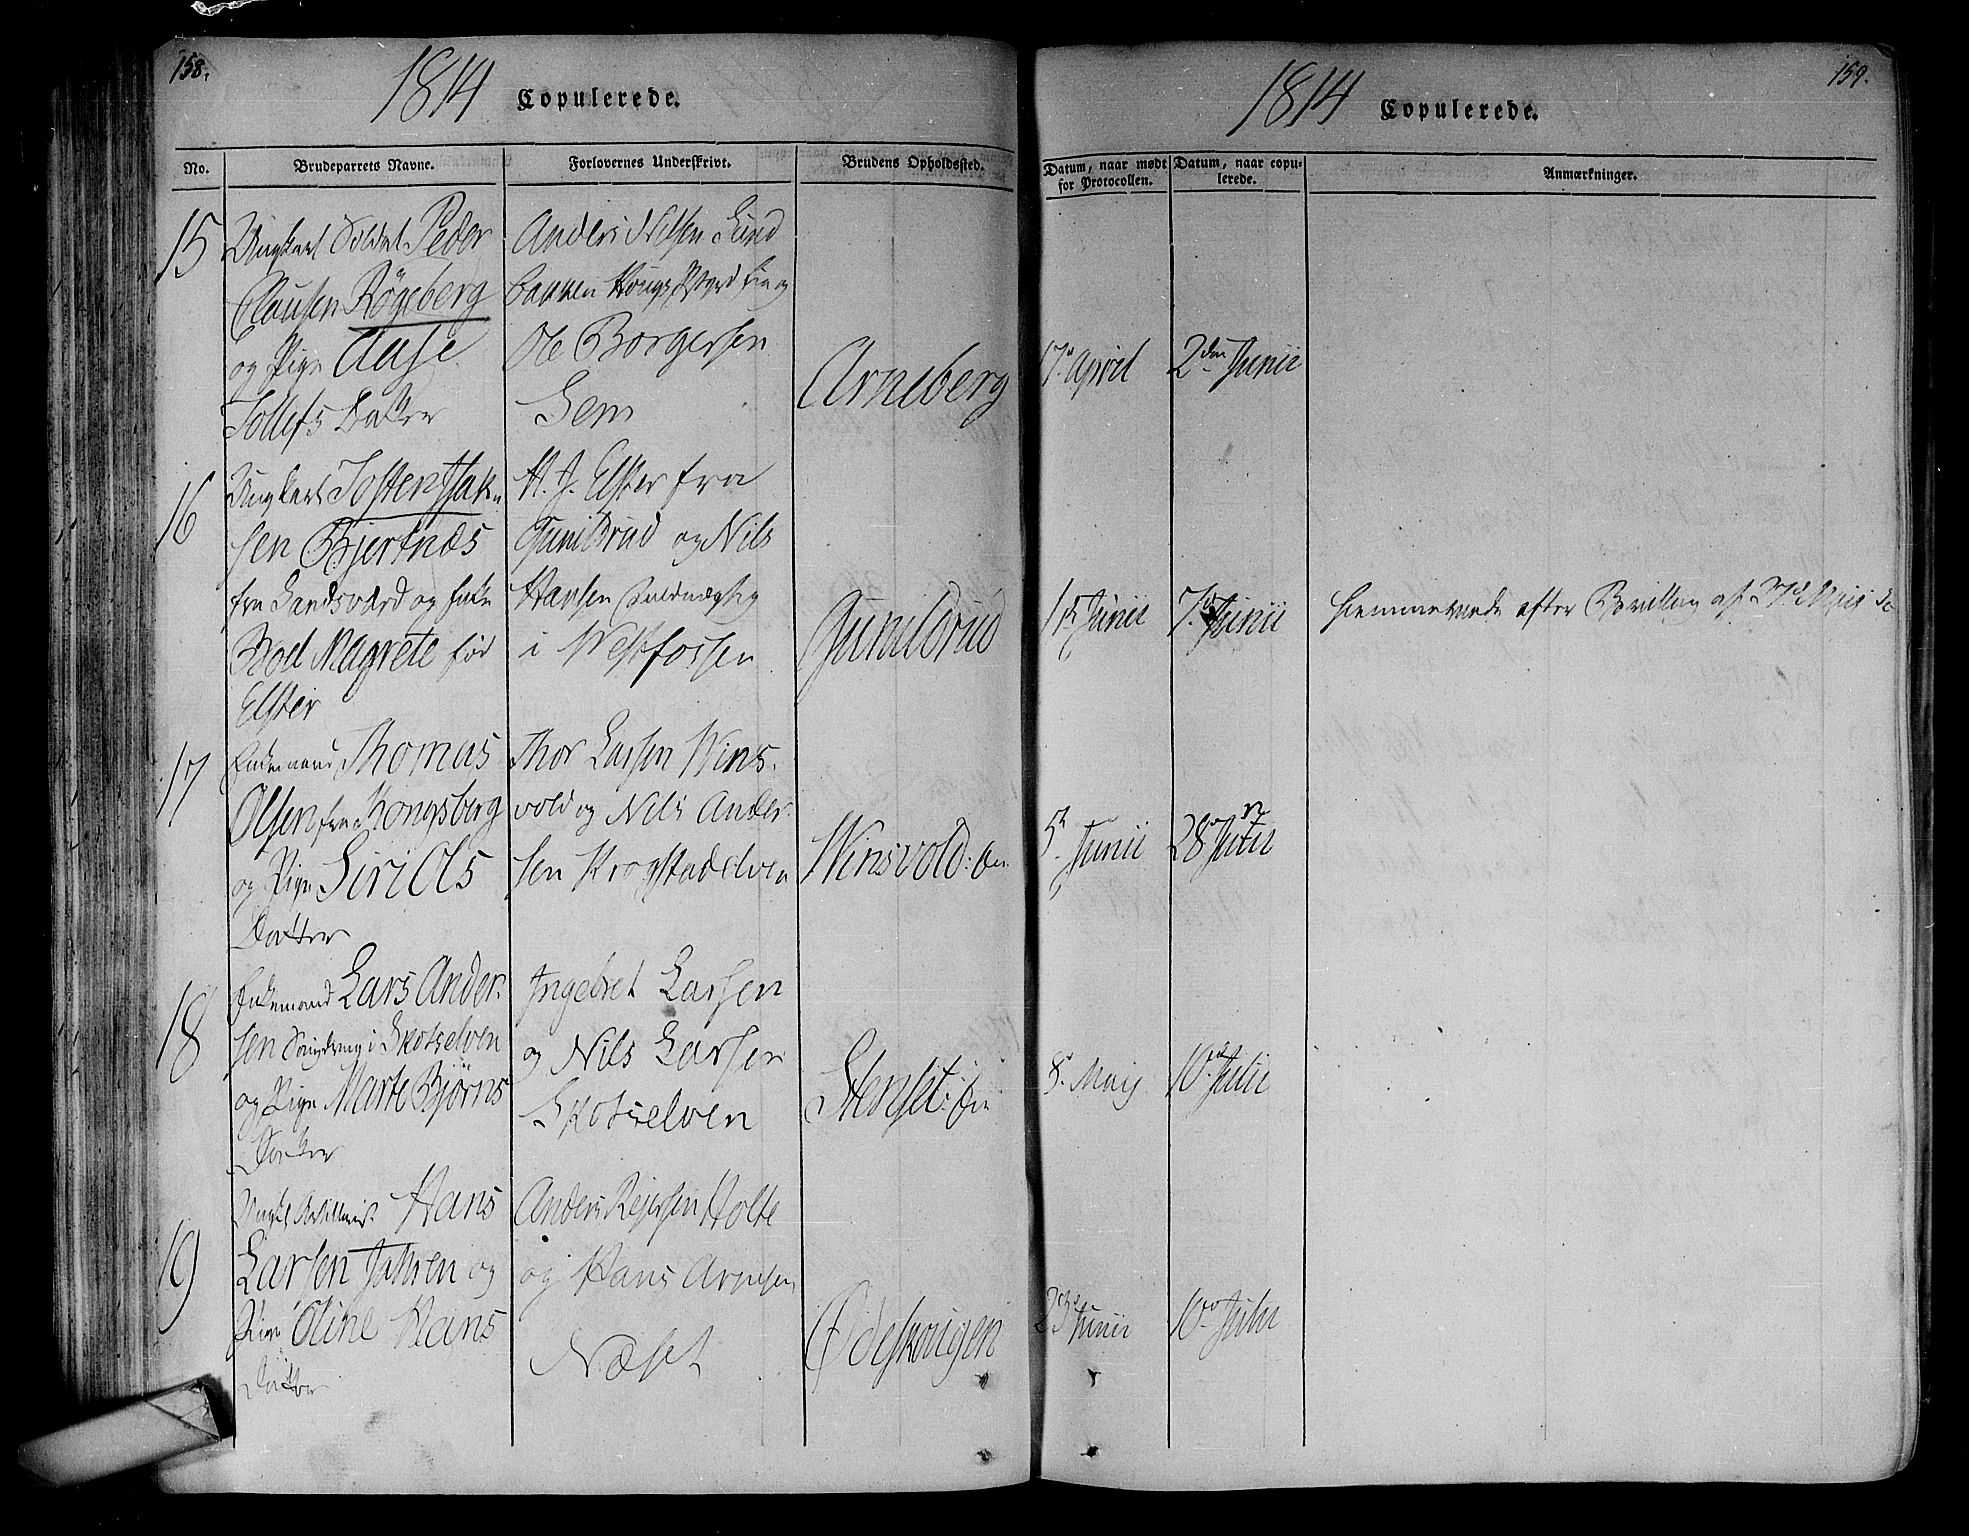 158.
1814 Copulerede.
No. Brudeparrets Navne. Forlovernes Underskrivt. Brudens Opholdssted.
15
Ungkarl Soldat Peder
Clausen Røgeberg
og Pige Aase
Tollefs Datter
Anders Nilsen Lund
bakken
Ole Borgersen
Sem
Arneberg
16
Ungkarl Tosten Isak
sen Bjertnæs
fra Sandsværd og Enke
Bod. Magrete før
Elster
H. J. Elster fra
Gunilbrud og Nils
Hansen
i Westfossen
Gunilbrud
17
Enkemand Thomas
Olsen fra Kongsberg
og Pige Siri Ols
Datter
Thor Larsen Wins-
vold og Nils Ander-
sen Krogstadelven
Winsvold:
18
Enkemand Lars Ander-
sen i Skotselven
og Pige Marte Bjørns
Datter
Ingebret Larsen
og Nils Larsen
Skotselven
Stenset:
19
Hans
Larsen Jahren og
Pige Oline Hans
Datter
Anders Rejersen Holte
og Hans Arnesen
Næset
Ødeskougen
159.
1814 Copulerede.
Datum, naar mødt for Protocollen. Datum, naar copulerede. Anmærkninger.
17. April 2den Junii
1st Junii 7d. Junii Hjemmeviede efter Bevilling af
5t. Junii 28. Junii
8. Maij 10. Julii
23 Junii 10. Julii